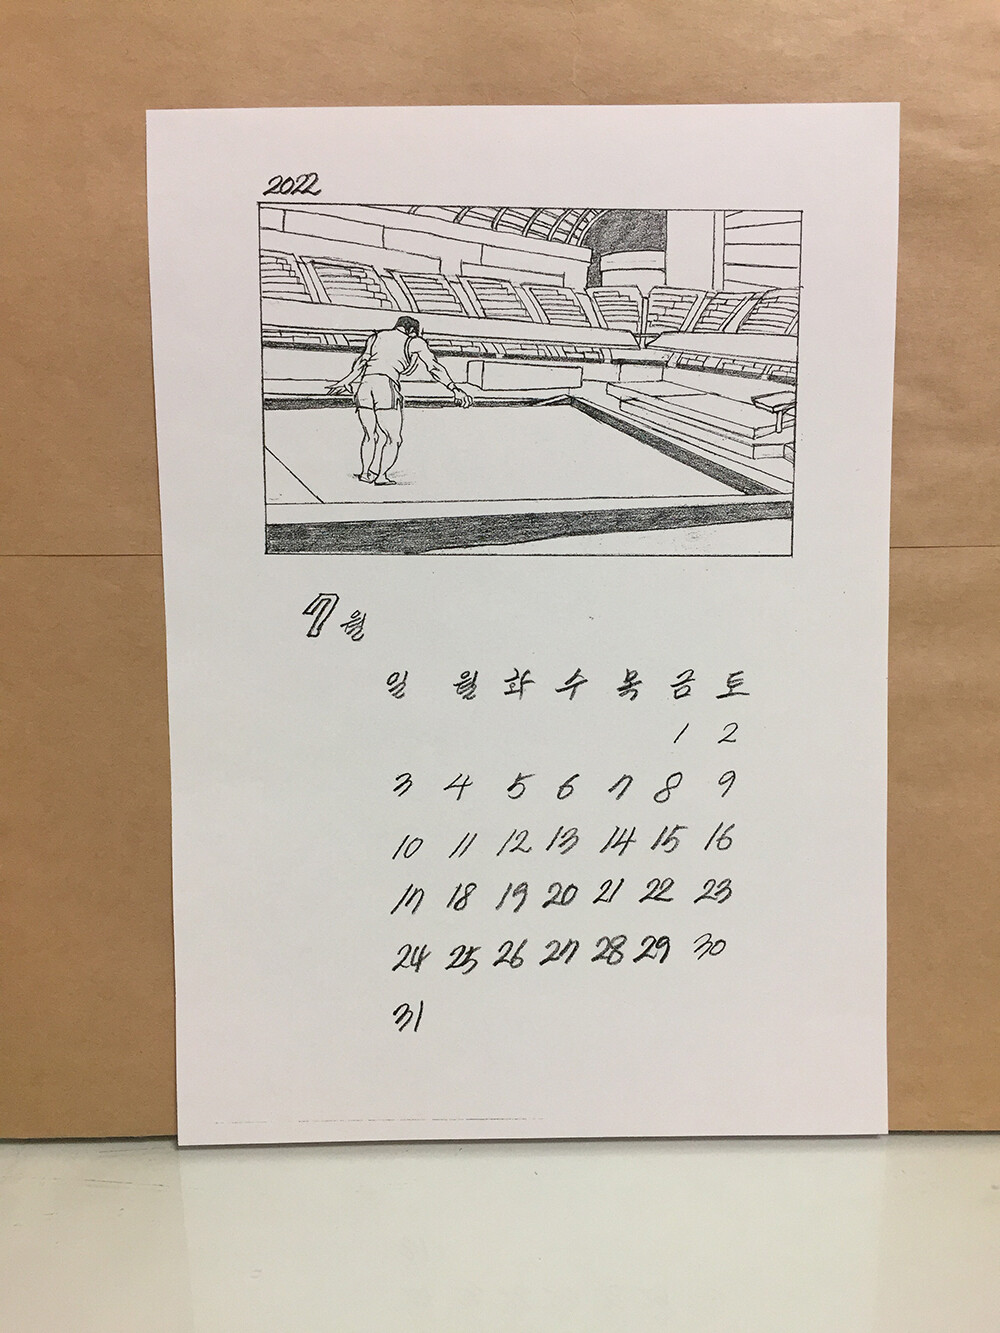 2022
7월
일 월 화 수 목 금 토
1 2
3 4 5 6 7 8 9
10 11 12 13 14 15 16
17 18 19 20 21 22 23
24 25 26 27 28 29 30
31